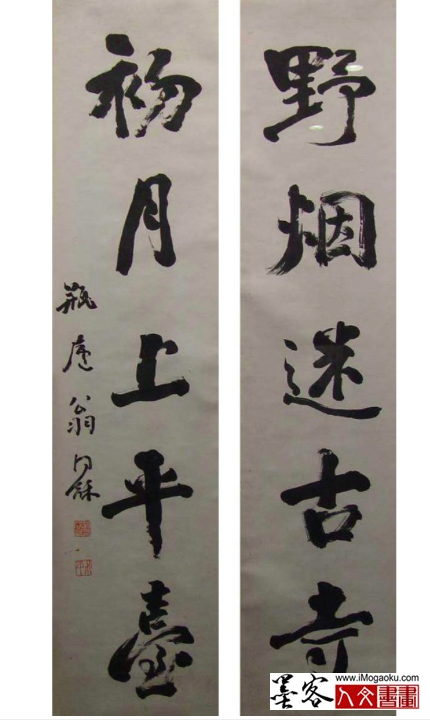 野烟迷古寺
初月上平臺
瓶廬翁同龢
www.iMogaoku.com
墨客
人文書畫